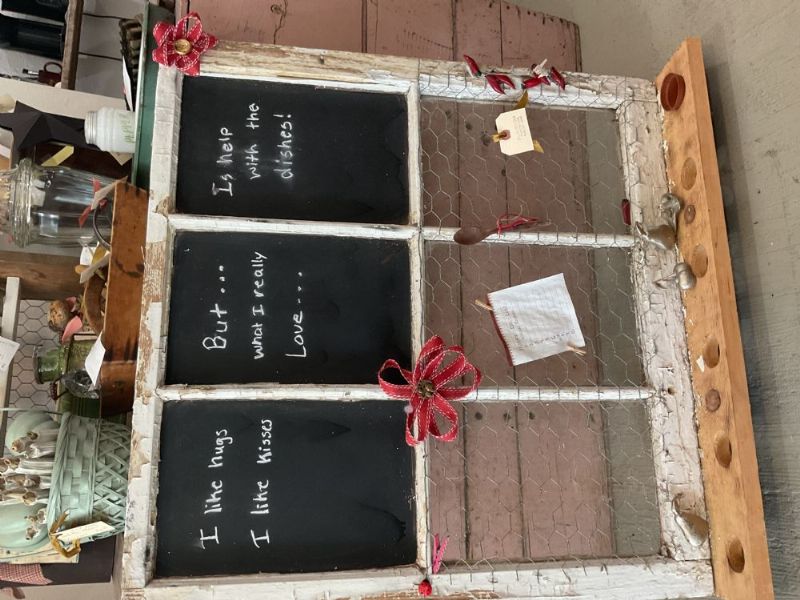 I like hugs
I like Kisses
But...
what I really
Love...
Is help
with the
dishes!